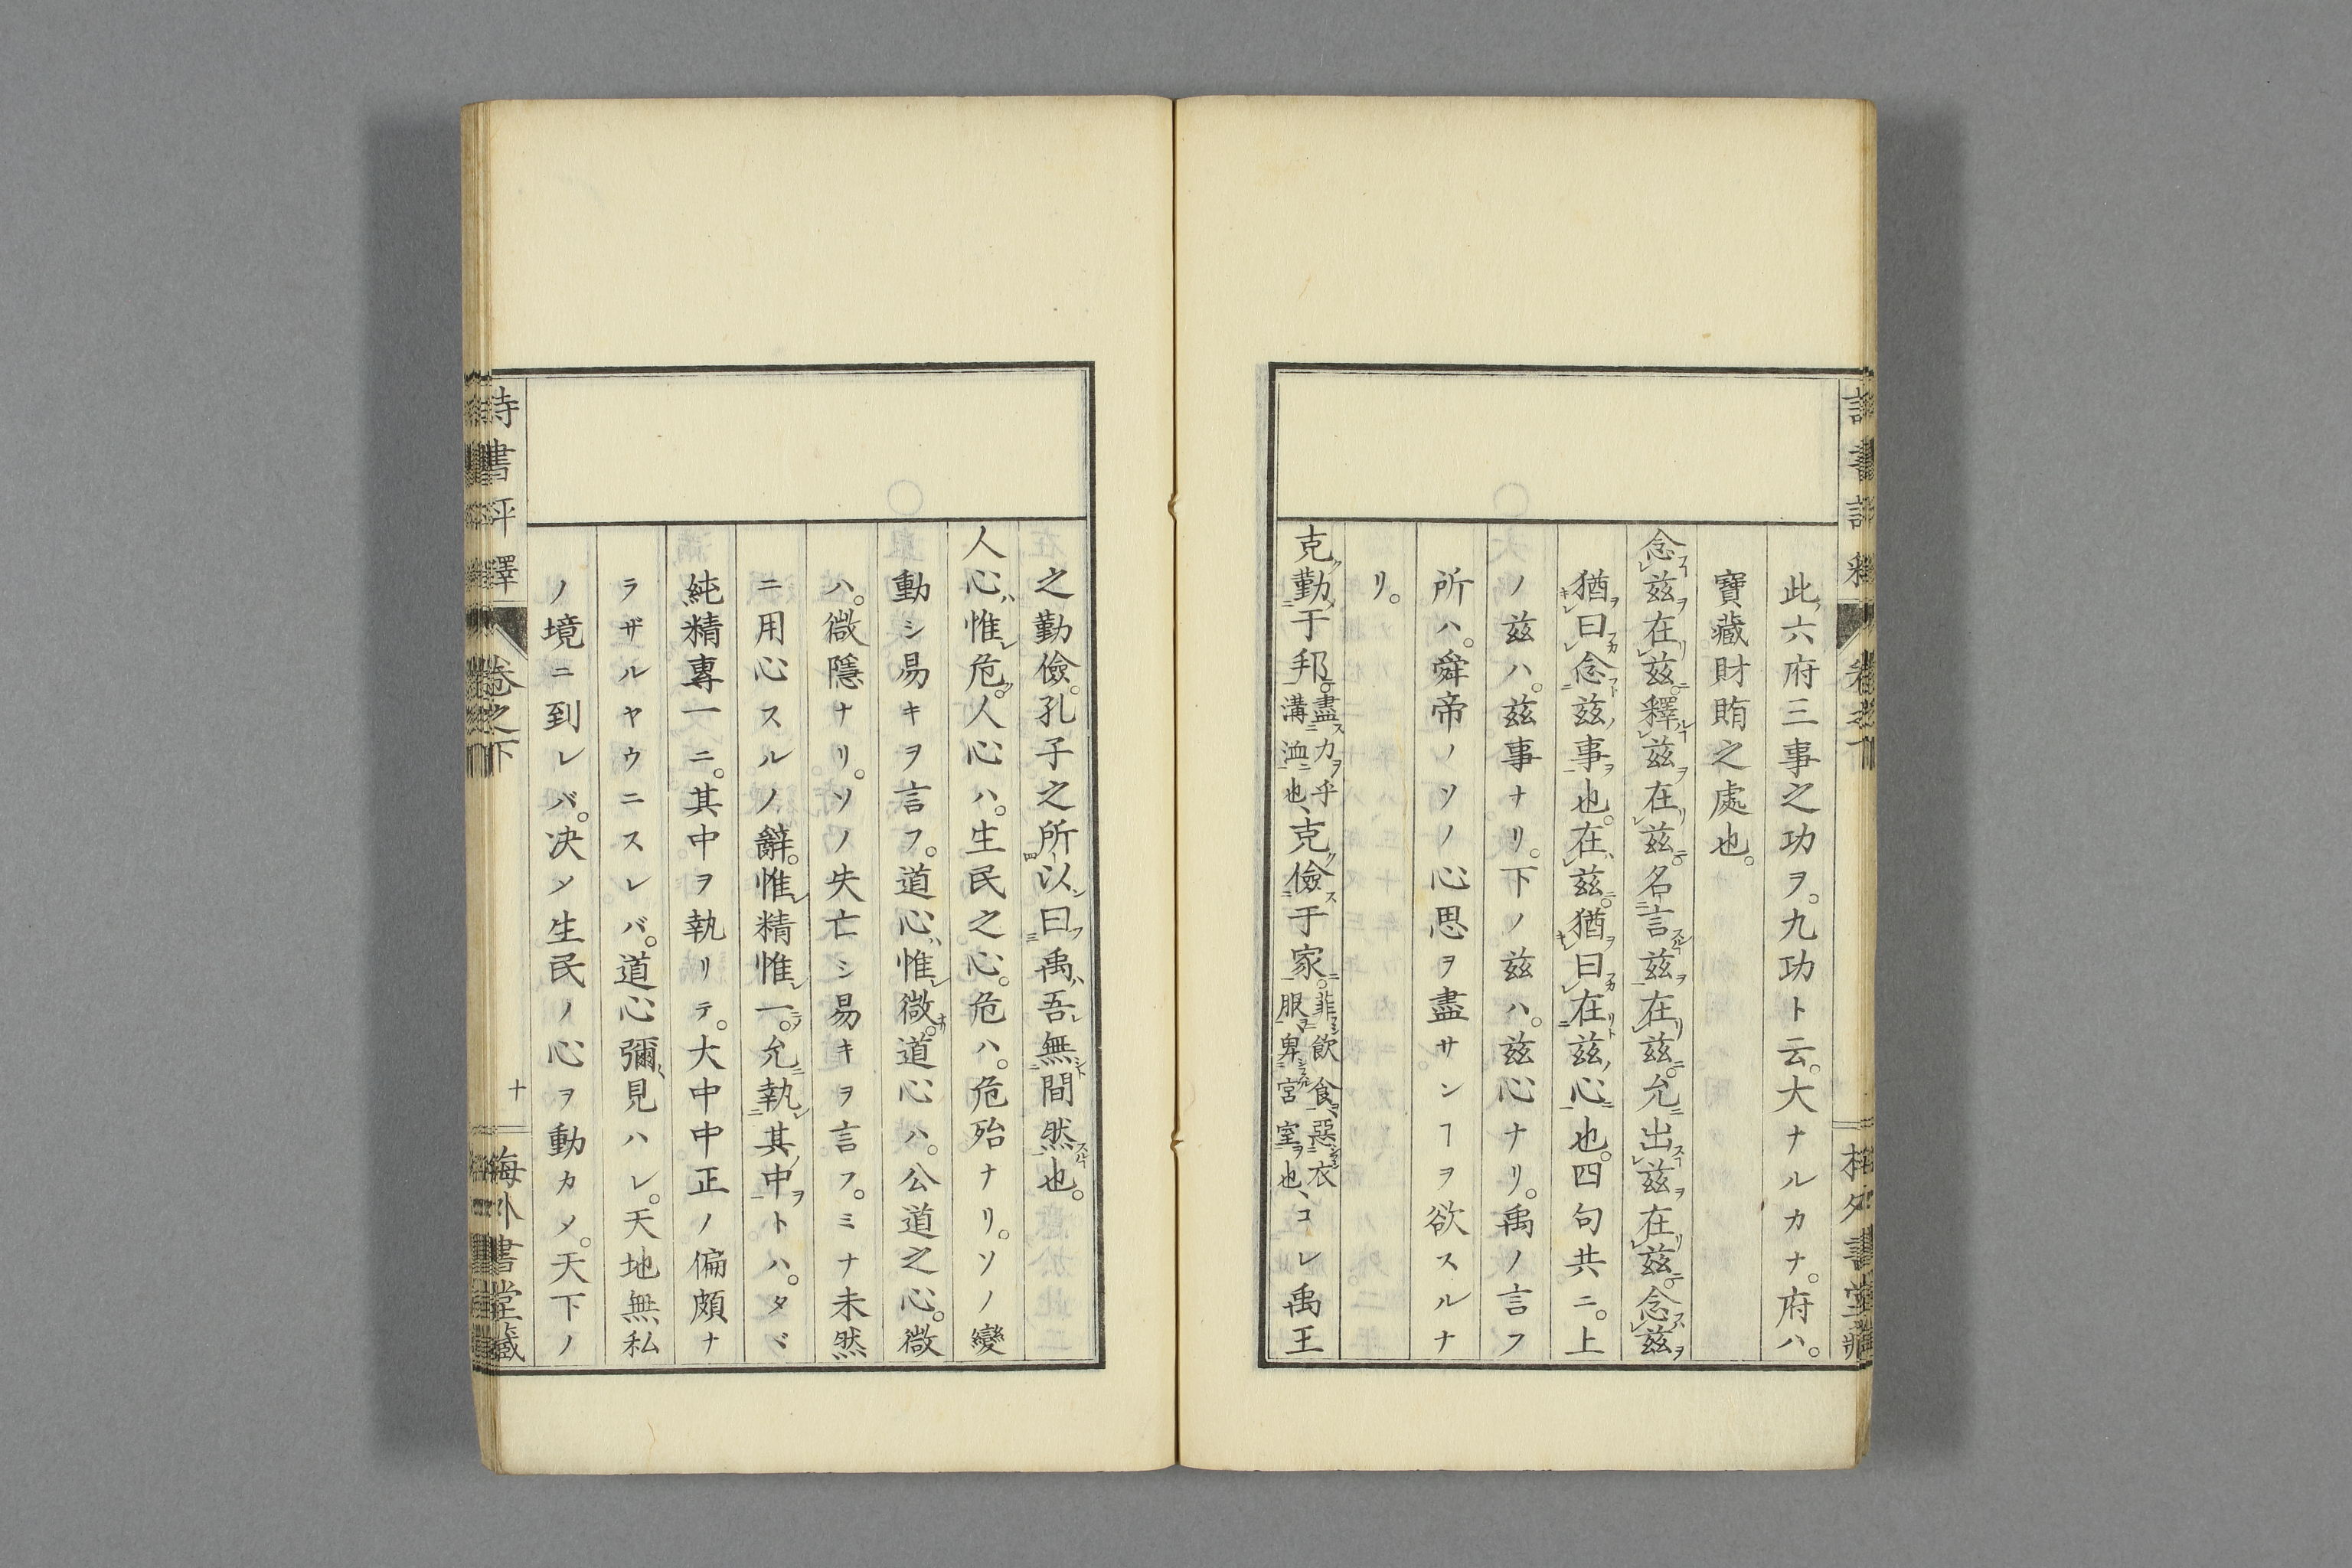 此六府三事之功ヲ。九功ト云。大ナルカナ。府ハ。
寶藏財賄之處也。
念茲在茲。釋茲在茲。名言茲在茲。允出茲在茲。念茲
猶曰念茲事也。在茲。猶曰在茲心也。四句共ニ。上
ノ茲ハ。茲事ナリ。下ノ茲ハ。茲心ナリ。禹ノ言フ
所ハ。舜帝ノソノ心思ヲ盡サンヿヲ欲スルナ
リ。
克勤于邦。盡力乎溝洫也、克儉于家。菲飲食、惡衣服、卑宮室也、コレ禹王
之勤儉。孔子之所以曰禹吾無間然也。
人心惟危。人心ハ。生民之心。危ハ。危殆ナリ。ソノ變
動シ易キヲ言フ。道心惟微。道心ハ。公道之心。微
ハ。微隱ナリ。ソノ失亡シ易キヲ言フ。ミナ未然
ニ用心スルノ辭。惟精惟一。允執其中トハ。タヾ
純精專一ニ。其中ヲ執リテ。大中中正ノ偏頗ナ
ラザルヤウニスレバ。道心彌見ハレ。天地無私
ノ境ニ到レバ。决メ生民ノ心ヲ動カメ。天下ノ
詩書評釋 卷之下 十 梅外書堂藏